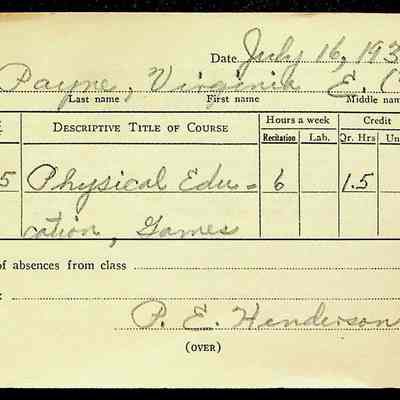 Date July 16, 193
Payne, Virginia E.
Last name First name Middle nam
Descriptive Title of Course Hours a week Credit
Recitation Lab. Qr. Hrs Un
5 Physical Edu- 6 1.5
cation, Games
of absences from class
:
P. E. Henderson
(OVER)